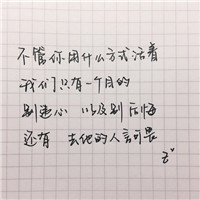 不管你用什么方式活着
我们只有一个目的
别违心 以及别后悔
还有 去他的人言可畏